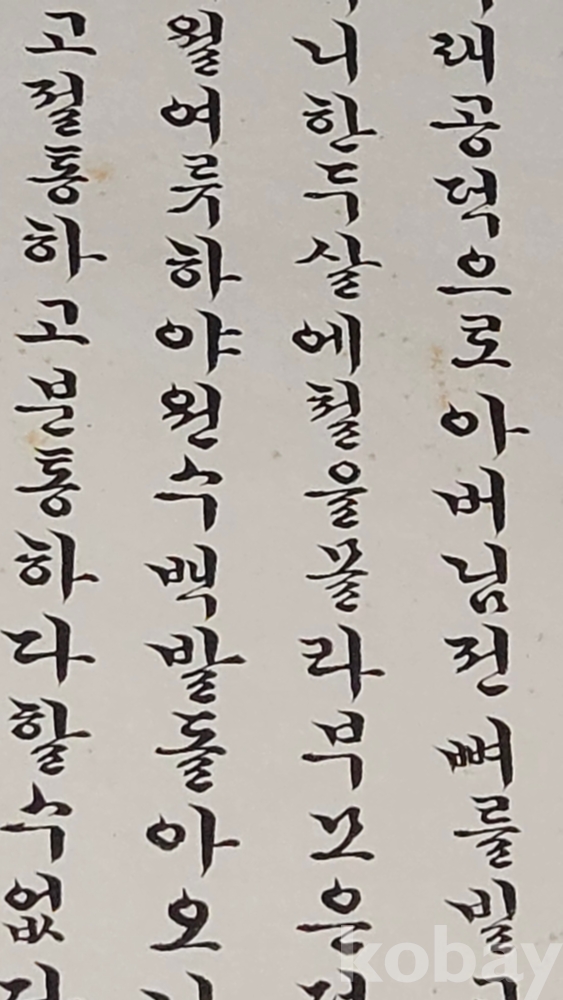 래공덕으로아버님전뼈를빌
니한두살에철을몰라부모은
월여류하야원수백발돌아오
고절통하고분통하다할수없
kobay